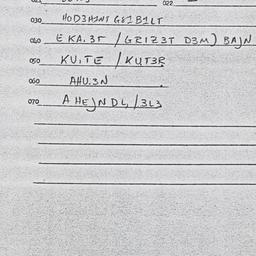 022
030 HOD3HINS G&IBILT
040 E KA.3T / GRIZ3T D3M) BAJN
050 KU.TE / KUT3R
060 AHU.3N
070 A HEJNDL, / 3L3